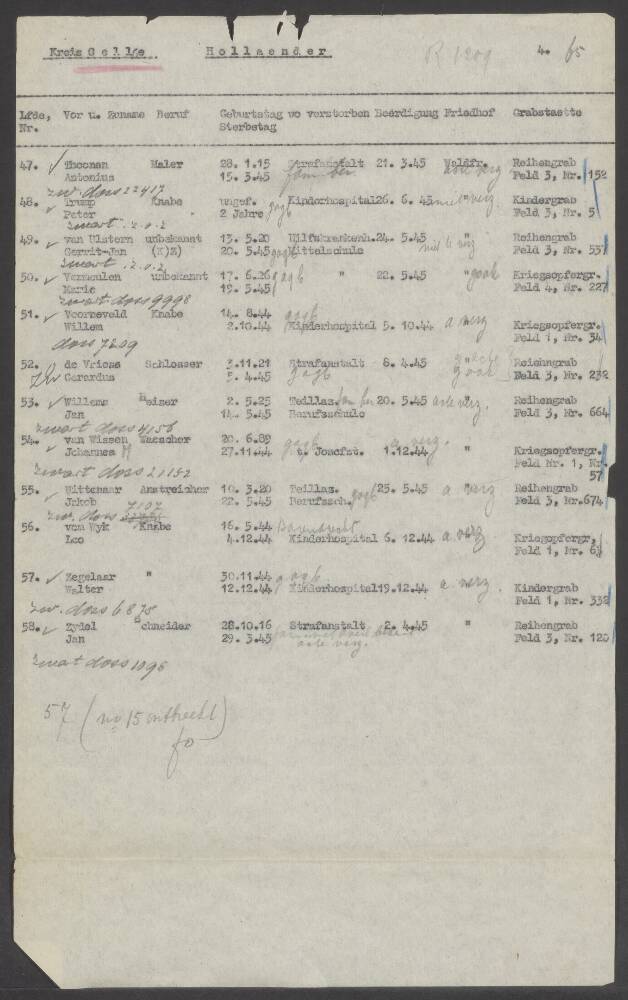 Kreis Celle. Hollaender R 1209 4. 65
Lfde, Vor u. Zuname Beruf Geburtstag wo verstorben Beerdigung Friedhof Grabstaette
Nr. Sterbetag
47. Thoonen Maler 28. 1.15 Strafanstalt 21. 3.45 Waldfr. Reihengrab
Antonius 15. 3.45 Feld 3, Nr. 152
zw. doss 22417
48. Trump Knabe ungef. Kinderhospital 26. 6. 45 " Kindergrab
Peter 2 Jahre gagb Feld 3, Nr. 5
zwart
49. van Ulstern unbekannt 13. 5.20 Hilfskrankenh. 24. 5.45 " Reihengrab
Gerrit-Jan (KZ) 20. 5.45 Mittelschule Feld 3, Nr. 537
zwart
50. Vermeulen unbekannt 17. 6.26 gagb " 22. 5.45 " Kriegsopfergr.
Marie 19. 5.45 Feld 4, Nr. 227
zwart doss 9998
51. Voorneveld Knabe 14. 8.44 gagb
Willem 2.10.44 Kinderhospital 5. 10.44 a verz " Kriegsopfergr.
doss 7209 Feld 1, Nr. 34
52. de Vriess Schlosser 3.11.21 Strafanstalt 8. 4.45 Reihengrab
Gerardus 5. 4.45 gagb Feld 3, Nr. 232
53. Willems Heizer 2. 5.25 Teillaz. 20. 5.45 acte verz. " Reihengrab
Jan 14. 5.45 Berufsschule Feld 3, Nr. 664
zwart doss 4156
54. van Wissen Waescher 20. 6.89 gagb a verz.
Johannes M 27.11.44 St. Josefst. 1.12.44 " Kriegsopfergr.
zwart doss 21152 Feld Nr. 1, Nr.
57
55. Wittenaar Anstreicher 10. 3.20 Teillaz. 25. 5.45 a verz " Reihengrab
Jakob 22. 5.45 Berufssch. gagb Feld 3, Nr.674
zw. doss 7107
56. vom Wyk Knabe 16. 5.44 Barendrecht
Leo 4.12.44 Kinderhospital 6. 12.44 a. verz " Kriegopfergr,
Feld 1, Nr. 63
57. Zegelaar " 30.11.44 gagb
Walter 12.12.44 Kinderhospital 19.12.44 a. verz. " Kindergrab
zw. doss 6878 Feld 1, Nr. 332
58. Zydel Schneider 28.10.16 Strafanstalt 2. 4.45 " Reihengrab
Jan 29. 3.45 acte verz. Feld 3, Nr. 120
zwart doss 1096
57 (no 15 ontbreekt)
fo